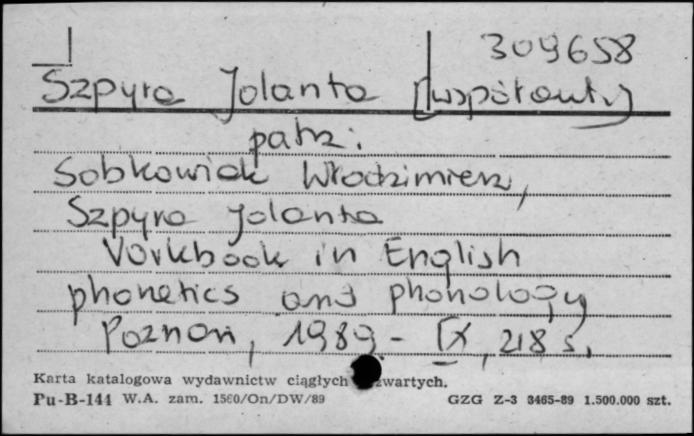 309658
Szpyra Jolanta [współaut.]
patrz:
Sobkowiak Włodzimierz,
Szpyra Jolanta
Workbook in English
phonetics and phonology
Poznań, 1989 - IX, 218 s.
Karta katalogowa wydawnictw ciągłych zwartych.
Pu-B-144 W.A. zam. 1560/On/DW/89 GZG Z-3 3465-89 1.500.000 szt.